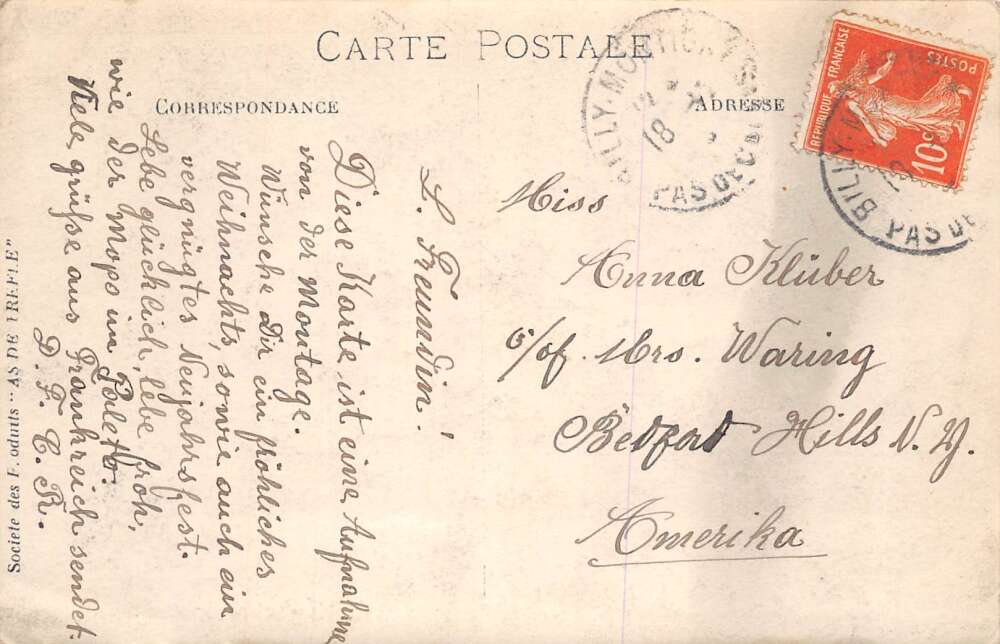 CARTE POSTALE
CORRESPONDANCE
ADRESSE
L. Freundin!
Diese Karte ist eine Aufnahme
von der Montage.
Wünsche Dir ein fröhliches
Weihnachts, sowie auch ein
vergnügtes Neujahrsfest.
Lebe glücklich, lebe froh,
wie der Mops im
Viele grüße aus Frankreich sendet.
D. F. C. R.
Miss
Anna Klüber
c/of. Mrs. Waring
Bedford Hills N. Y.
Amerika
RÉPUBLIQUE FRANÇAISE
POSTES
10c
BILLY-MONTIGNY
18
PAS DE CALAIS
BILLY-M
PAS DE
Société des Produits "AS DE TREFLE"